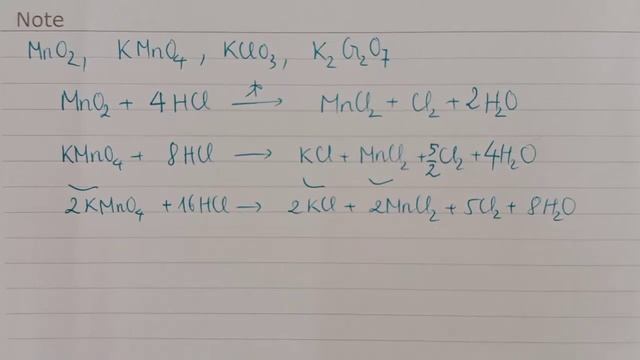 Note
MnO₂, KMnO₄, KClO₃, K₂Cr₂O₇
MnO₂ + 4HCl —t°→ MnCl₂ + Cl₂ + 2H₂O
KMnO₄ + 8HCl → KCl + MnCl₂ + 5/2Cl₂ + 4H₂O
2KMnO₄ + 16HCl → 2KCl + 2MnCl₂ + 5Cl₂ + 8H₂O